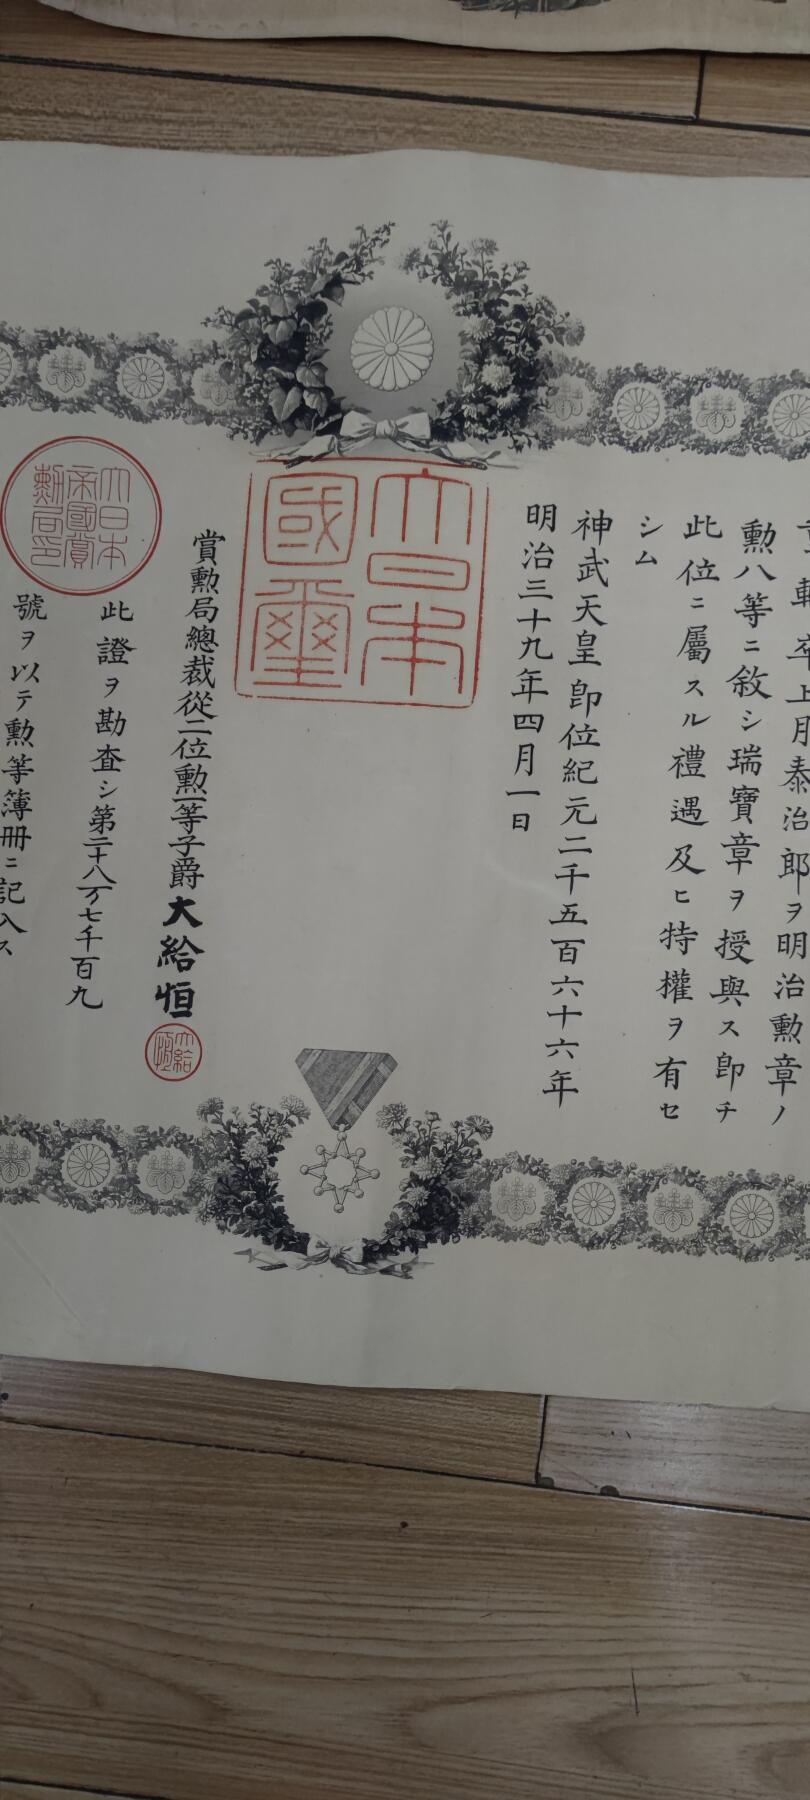 輸卒上月泰治郎ヲ明治勲章ノ
勲八等ニ敘シ瑞寶章ヲ授與ス卽チ
此位ニ屬スル禮遇及ヒ特權ヲ有セ
シム
神武天皇卽位紀元二千五百六十六年
明治三十九年四月一日
大日本
國璽
賞勲局總裁從二位勲一等子爵大給恒
大給
恒
此證ヲ勘査シ第二十八万七千百九
號ヲ以テ勲等簿冊ニ記入ス
大日本
帝國賞
勲局印